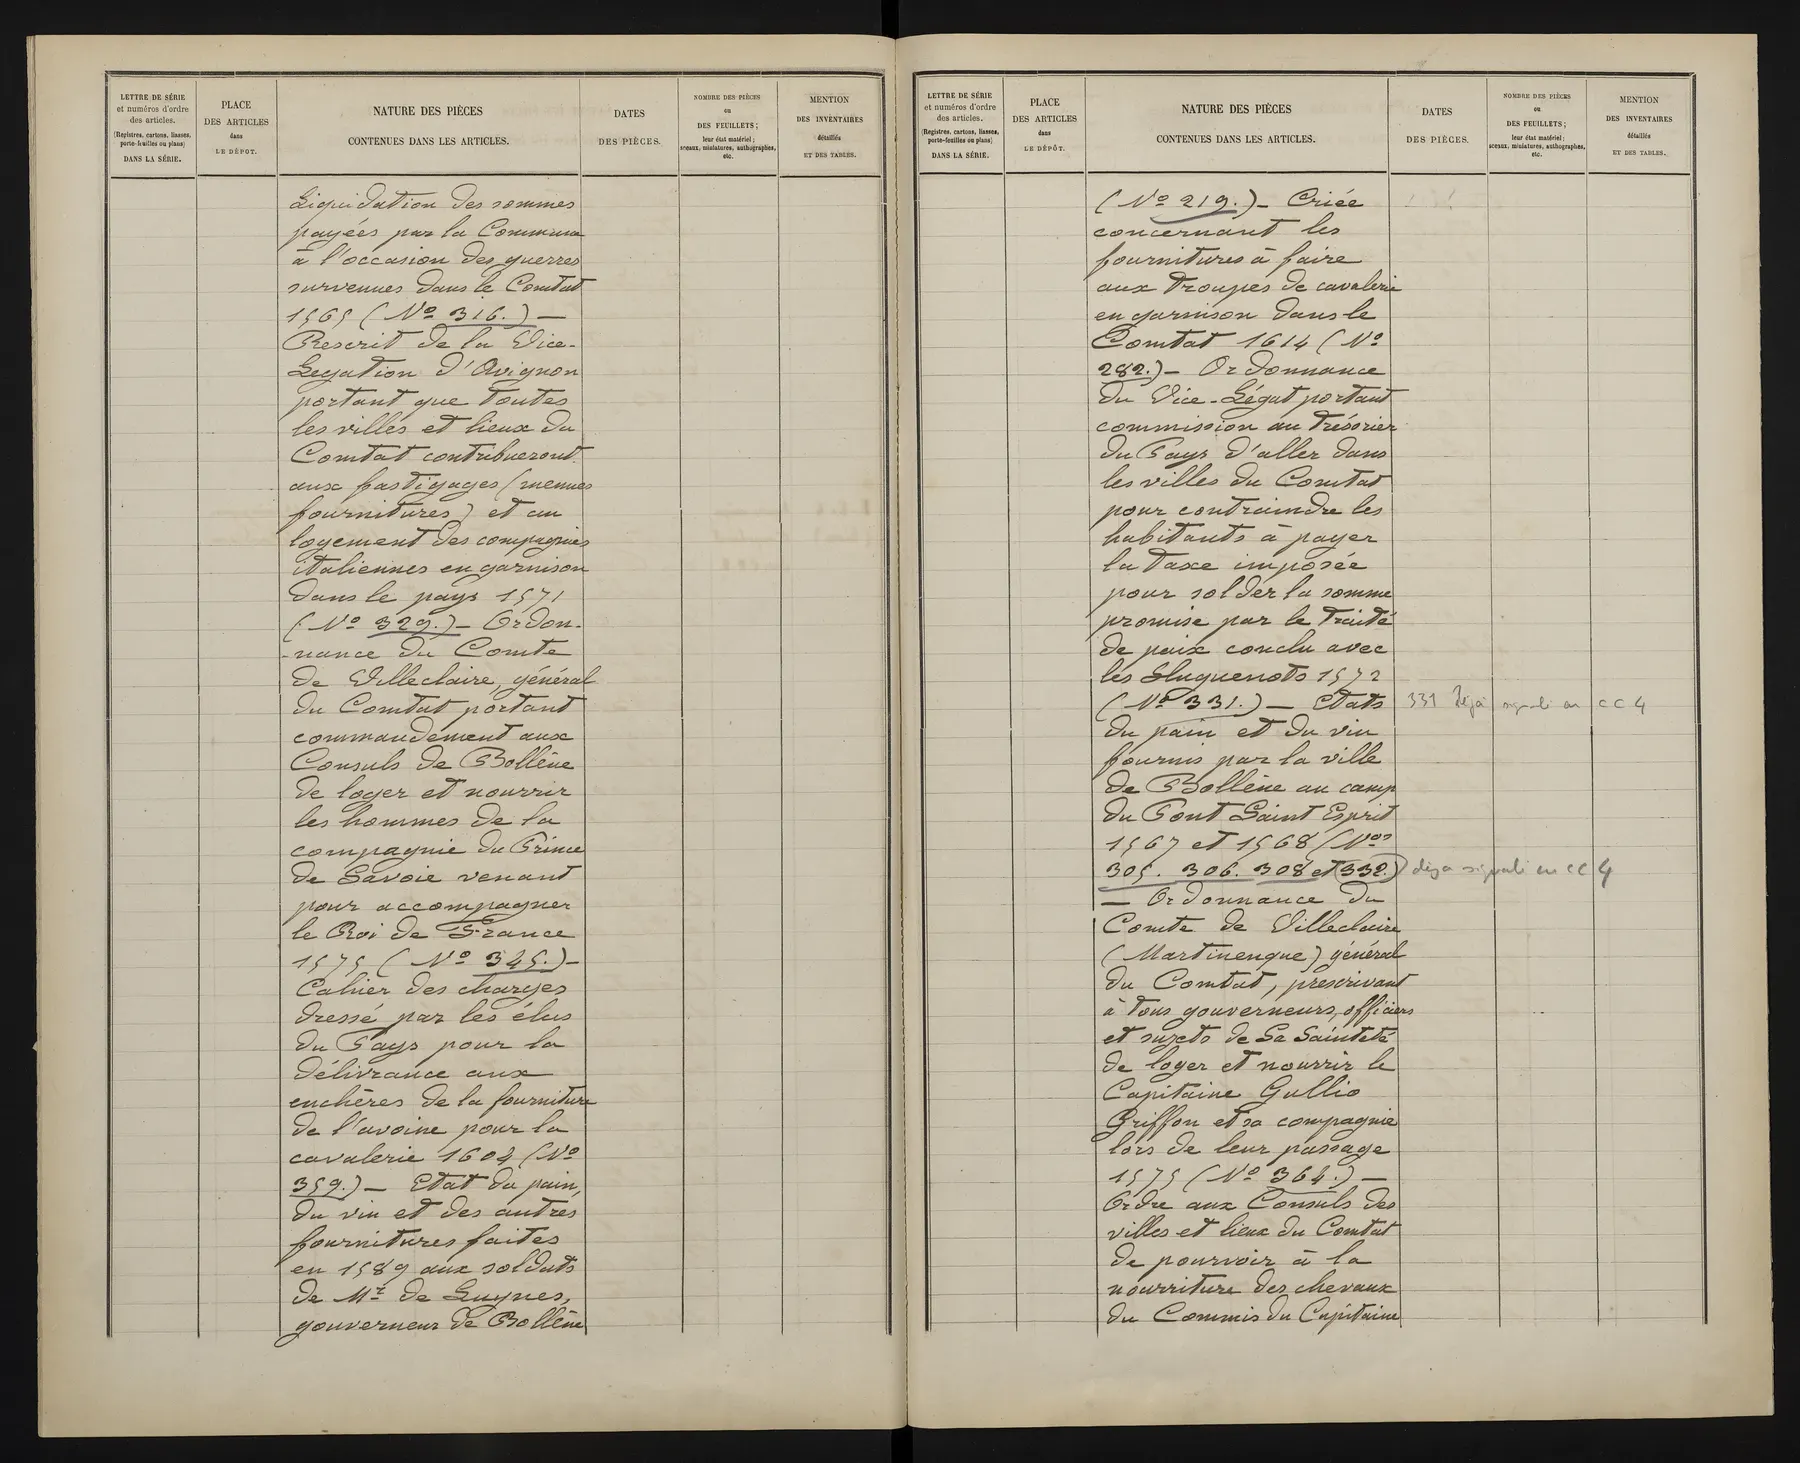 LETTRE DE SÉRIE
et numéros d'ordre
des articles.
(Registres, cartons, liasses,
porte-feuilles ou plans)
DANS LA SÉRIE.
PLACE
DES ARTICLES
dans
LE DÉPOT.
NATURE DES PIÈCES
CONTENUES DANS LES ARTICLES.
DATES
DES PIÈCES.
NOMBRE DES PIÈCES
ou
DES FEUILLETS;
leur état matériel;
sceaux, miniatures, authographes,
etc.
MENTION
DES INVENTAIRES
détaillés
ET DES TABLES.
Liquidation des sommes
payées par la Commune
à l'occasion des guerres
survenues dans le Comtat
1565 (No 316.) —
Rescrit de la Vice-
Legation d'Avignon
portant que toutes
les villes et lieux du
Comtat contribueront
aux fastigages (menues
fournitures) et au
logement des compagnies
italiennes en garnison
dans le pays 1571
(No 329.) — Ordon-
-nance du Comte
de Villeclaire, général
du Comtat portant
commandement aux
Consuls de Bollène
de loger et nourrir
les hommes de la
compagnie du Prince
de Savoie venant
pour accompagner
le Roi de France
1575 (No 345.) —
Cahier des charges
dressé par les élus
du Pays pour la
délivrance aux
enchères de la fourniture
de l'avoine pour la
cavalerie 1604 (No
359.) — Etat du pain,
du vin et des autres
fournitures faites
en 1589 aux soldats
de Mr de Luynes,
gouverneur de Bollène
LETTRE DE SÉRIE
et numéros d'ordre
des articles.
(Registres, cartons, liasses,
porte-feuilles ou plans)
DANS LA SÉRIE.
PLACE
DES ARTICLES
dans
LE DÉPÔT.
NATURE DES PIÈCES
CONTENUES DANS LES ARTICLES.
DATES
DES PIÈCES.
NOMBRE DES PIÈCES
ou
DES FEUILLETS;
leur état matériel;
sceaux, miniatures, authographes,
etc.
MENTION
DES INVENTAIRES
détaillés
ET DES TABLES.
(No 219.) — Criée
concernant les
fournitures à faire
aux troupes de cavalerie
en garnison dans le
Comtat 1614 (No
282.) — Ordonnance
du Vice-Légat portant
commission au Trésorier
du Pays d'aller dans
les villes du Comtat
pour contraindre les
habitants à payer
la taxe imposée
pour solder la somme
promise par le traité
de paix conclu avec
les Huguenots 1572
(No 331.) — Etats 331 Déjà signalé au CC4
du pain et du vin
fournis par la ville
de Bollène au camp
du Pont Saint Esprit
1567 et 1568 (Nos
305. 306. 308 et (332.) déja signalé en CC 4
— Ordonnance du
Comte de Villeclaire
(Martinengue) général
du Comtat, prescrivant
à tous gouverneurs, officiers
et sujets de Sa Sainteté
de loger et nourrir le
Capitaine Gullio
Griffon et sa compagnie
lors de leur passage
1575 (No 364.) —
Ordre aux Consuls des
villes et lieux du Comtat
de pourvoir à la
nourriture des chevaux
du Commis du Capitaine